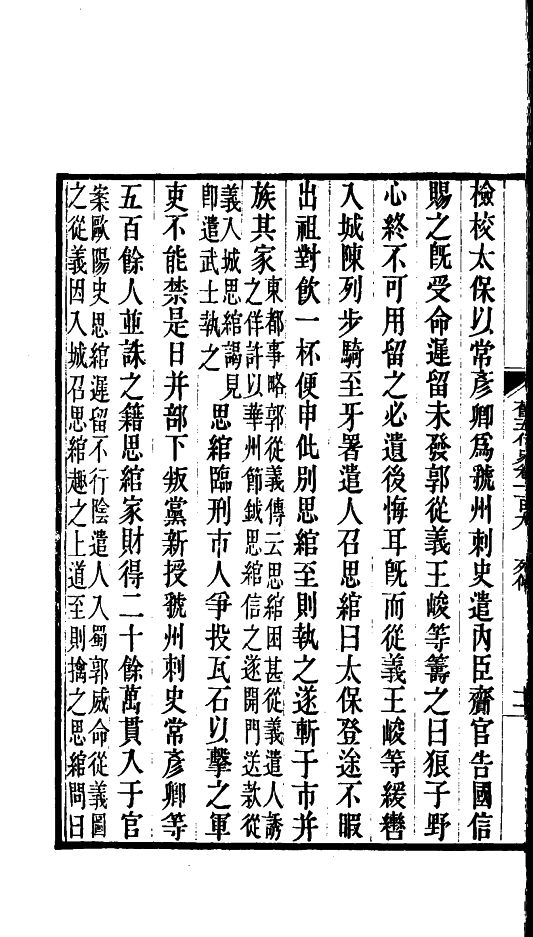 檢校太保以常彥卿為虢州刺史遣內臣齎官告國信
賜之旣受命遲留未發郭從義王峻等籌之曰狼子野
心終不可用留之必遺後悔耳旣而從義王峻等緩轡
入城陳列步騎至牙署遣人召思綰曰太保登途不暇
出祖對飲一杯便申仳別思綰至則執之遂斬于市并
族其家
東都事略郭從義傳云思綰困甚從義遣人誘
之佯許以華州節鉞思綰信之遂開門送款從
義入城思綰謁見
卽遣武士執之
思綰臨刑市人爭投瓦石以擊之軍
吏不能禁是日并部下叛黨新授虢州刺史常彥卿等
五百餘人並誅之籍思綰家財得二十餘萬貫入于官
案歐陽史思綰遲留不行陰遣人入蜀郭威命從義圖
之從義因入城召思綰趣之上道至則擒之思綰問曰
舊五代史卷一百九 列傳